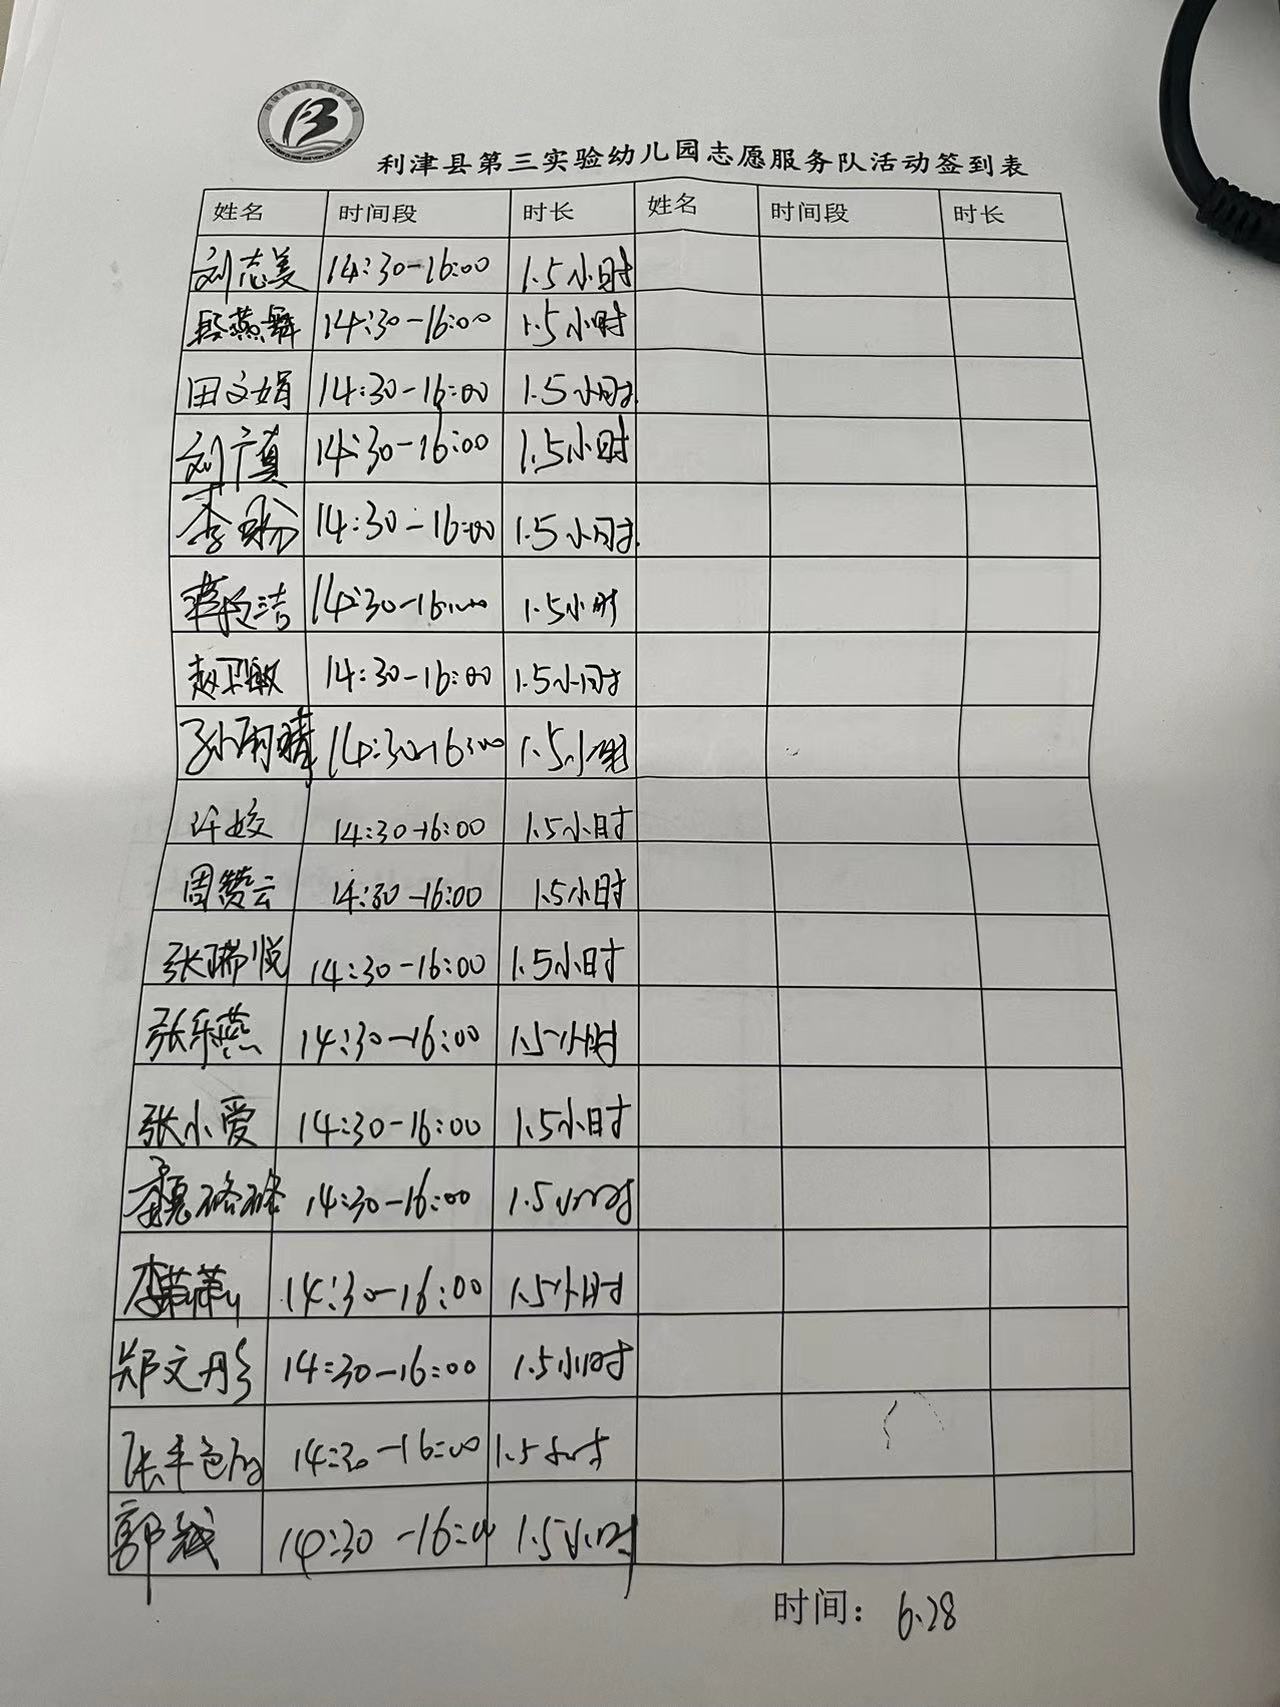 利津县第三实验幼儿园志愿服务队活动签到表
姓名 时间段 时长 姓名 时间段 时长
刘志美 14:30-16:00 1.5小时
段燕舞 14:30-16:00 1.5小时
田文娟 14:30-16:00 1.5小时
刘广真 14:30-16:00 1.5小时
李 14:30-16:00 1.5小时
14:30-16:00 1.5小时
赵卫敏 14:30-16:00 1.5小时
孙雨晴 14:30-16:00 1.5小时
许姣 14:30-16:00 1.5小时
周赞云 14:30-16:00 1.5小时
张瑞悦 14:30-16:00 1.5小时
张乐燕 14:30-16:00 1.5小时
张小爱 14:30-16:00 1.5小时
魏 14:30-16:00 1.5小时
李 14:30-16:00 1.5小时
郑文丹 14:30-16:00 1.5小时
张 14:30-16:00 1.5小时
郭 14:30-16:00 1.5小时
时间： 6.28